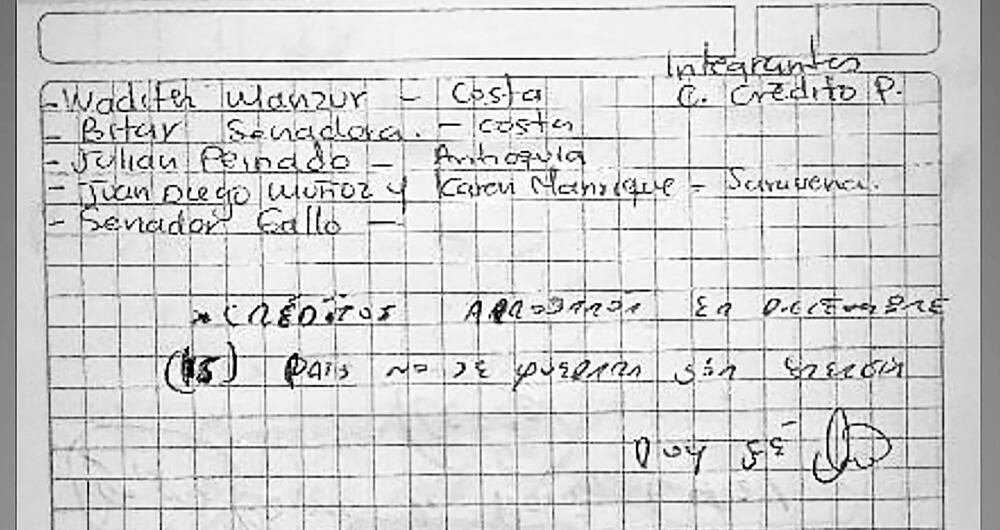 Integrantes
C. Crédito P.
- Wadith Manzur - Costa
- Bitar Senadora. - Costa
- Julian Peinado - Antioquia
- Juan Diego Muñoz y Karen Manrique - Saravena.
- Senador Gallo -
* CRÉDITOS APROBADOS EN DICIEMBRE
(15) PAIS NO SE QUEDARA SIN ENERGÍA
DOY FÉ